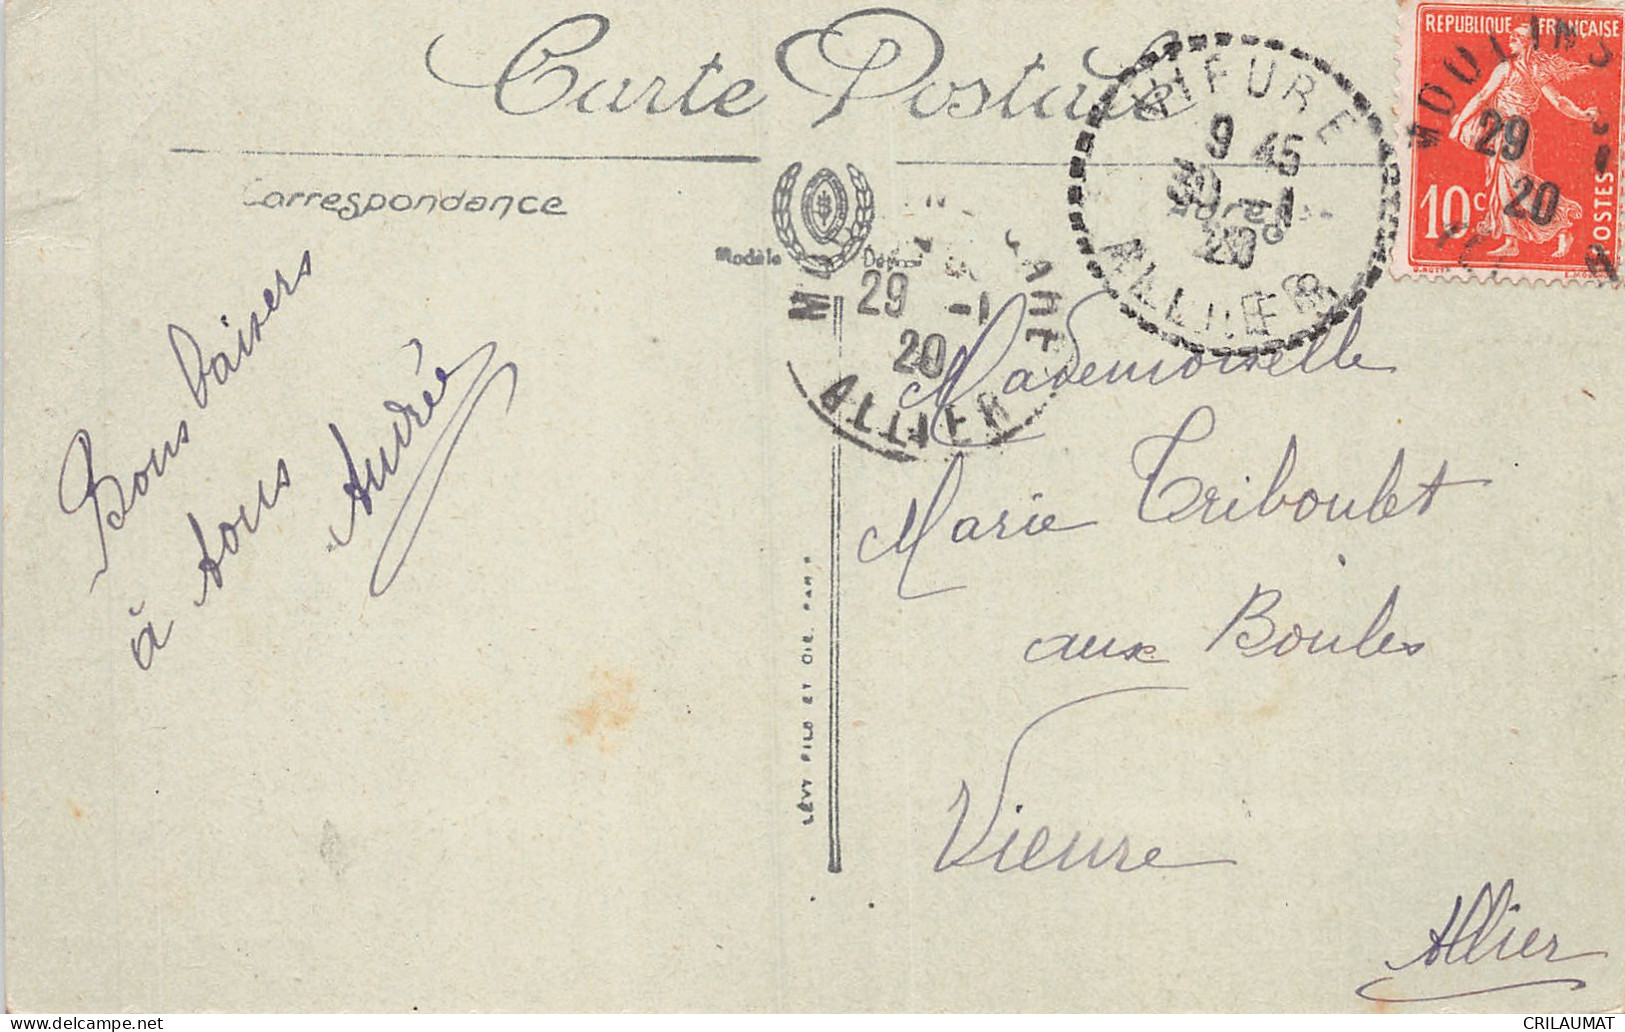 Carte Postale
Correspondance
Modèle Déposé
Bons baisers
à tous
Andrée
LÉVY FILS ET CIE. PARIS
Mademoiselle
Marie Triboulet
aux Boules
Vieure
Allier
VIEURE
9 45
30 -1
20
ALLIER
GARE
29 -1
20
ALLIER
MOULINS
29
20
RÉPUBLIQUE FRANÇAISE
10c
POSTES
CRILAUMAT